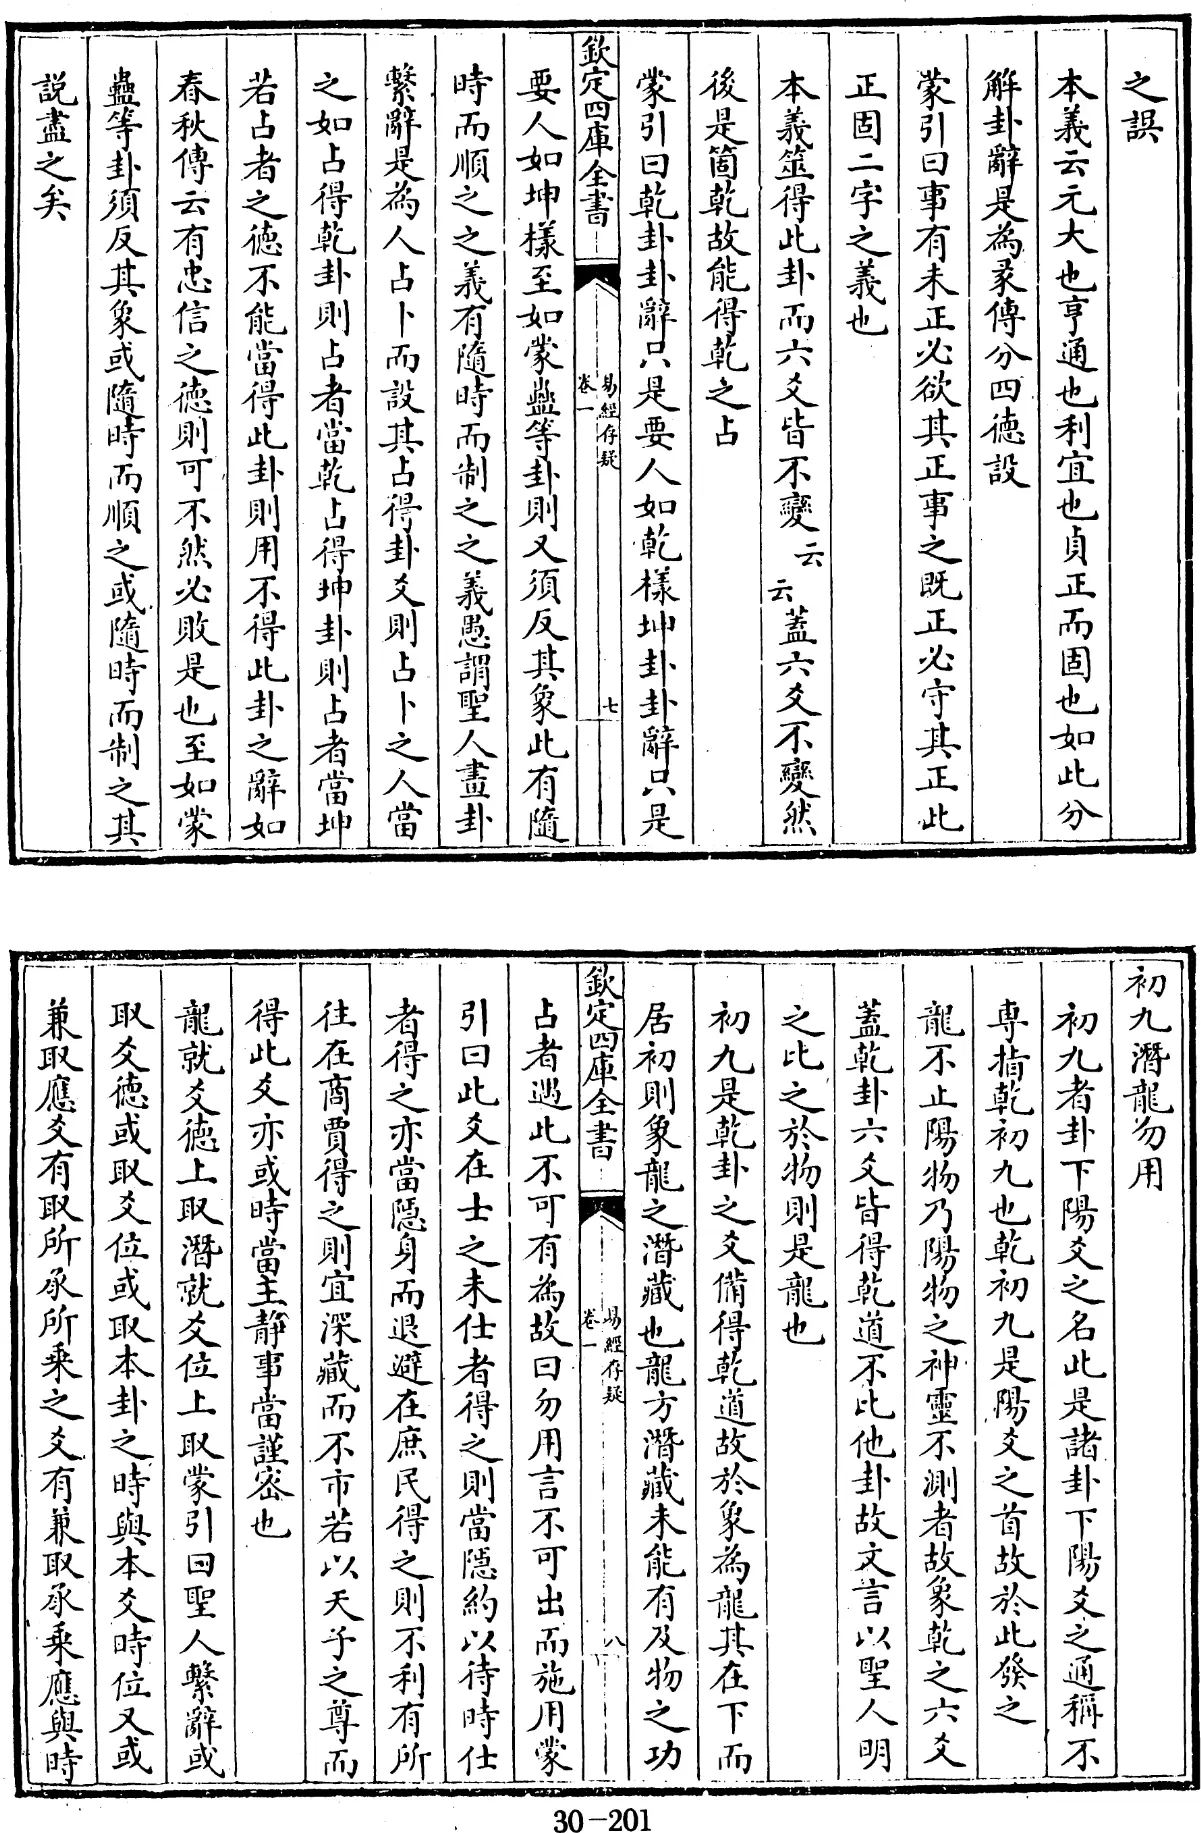 之誤
本義云元大也亨通也利宜也貞正而固也如此分
解卦辭是為彖傳分四德設
蒙引曰事有未正必欲其正事之既正必守其正此
正固二字之義也
本義筮得此卦而六爻皆不變云云蓋六爻不變然
後是箇乾故能得乾之占
蒙引曰乾卦卦辭只是要人如乾樣坤卦卦辭只是
欽定四庫全書
易經存疑
卷一
七
要人如坤樣至如蒙蠱等卦則又須反其象此有隨
時而順之之義有隨時而制之之義愚謂聖人畫卦
繫辭是為人占卜而設其占得卦爻則占卜之人當
之如占得乾卦則占者當乾占得坤卦則占者當坤
若占者之德不能當得此卦則用不得此卦之辭如
春秋傳云有忠信之德則可不然必敗是也至如蒙
蠱等卦須反其象或隨時而順之或隨時而制之其
説盡之矣
初九潛龍勿用
初九者卦下陽爻之名此是諸卦下陽爻之通稱不
専指乾初九也乾初九是陽爻之首故於此發之
龍不止陽物乃陽物之神靈不測者故象乾之六爻
蓋乾卦六爻皆得乾道不比他卦故文言以聖人明
之比之於物則是龍也
初九是乾卦之爻備得乾道故於象為龍其在下而
居初則象龍之潛藏也龍方潛藏未能有及物之功
欽定四庫全書
易經存疑
卷一
八
占者遇此不可有為故曰勿用言不可出而施用蒙
引曰此爻在士之未仕者得之則當隱約以待時仕
者得之亦當隱身而退避在庶民得之則不利有所
往在商賈得之則宜深藏而不市若以天子之尊而
得此爻亦或時當主靜事當謹密也
龍就爻德上取潛就爻位上取蒙引曰聖人繫辭或
取爻德或取爻位或取本卦之時與本爻時位又或
兼取應爻有取所承所乘之爻有兼取承乘應與時
30-201